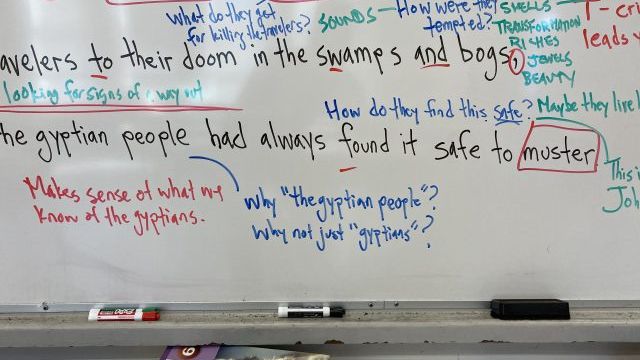 What do they get
for killing the travelers?
SOUNDS
How were they
tempted?
SPELLS
TRANSFORMATION
RICHES
JEWELS
BEAUTY
leads
avelers to their doom in the swamps and bogs,
looking for signs of a way out
How do they find this safe?
Maybe they live
he gyptian people had always found it safe to muster
This i
Joh
Makes sense of what we
know of the gyptians.
Why "the gyptian people"?
Why not just "gyptians"?
EXPO
6